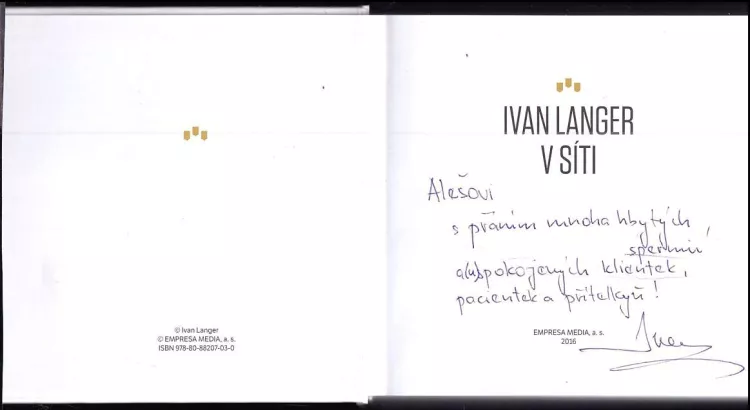 © Ivan Langer
© EMPRESA MEDIA, a. s.
ISBN 978-80-88207-03-0
IVAN LANGER
V SÍTI
Alešovi
s přáním mnoha hbytých
spermií,
a(u)spokojených klientek,
pacientek a přítelkyň!
EMPRESA MEDIA, a. s.
2016
Ivan